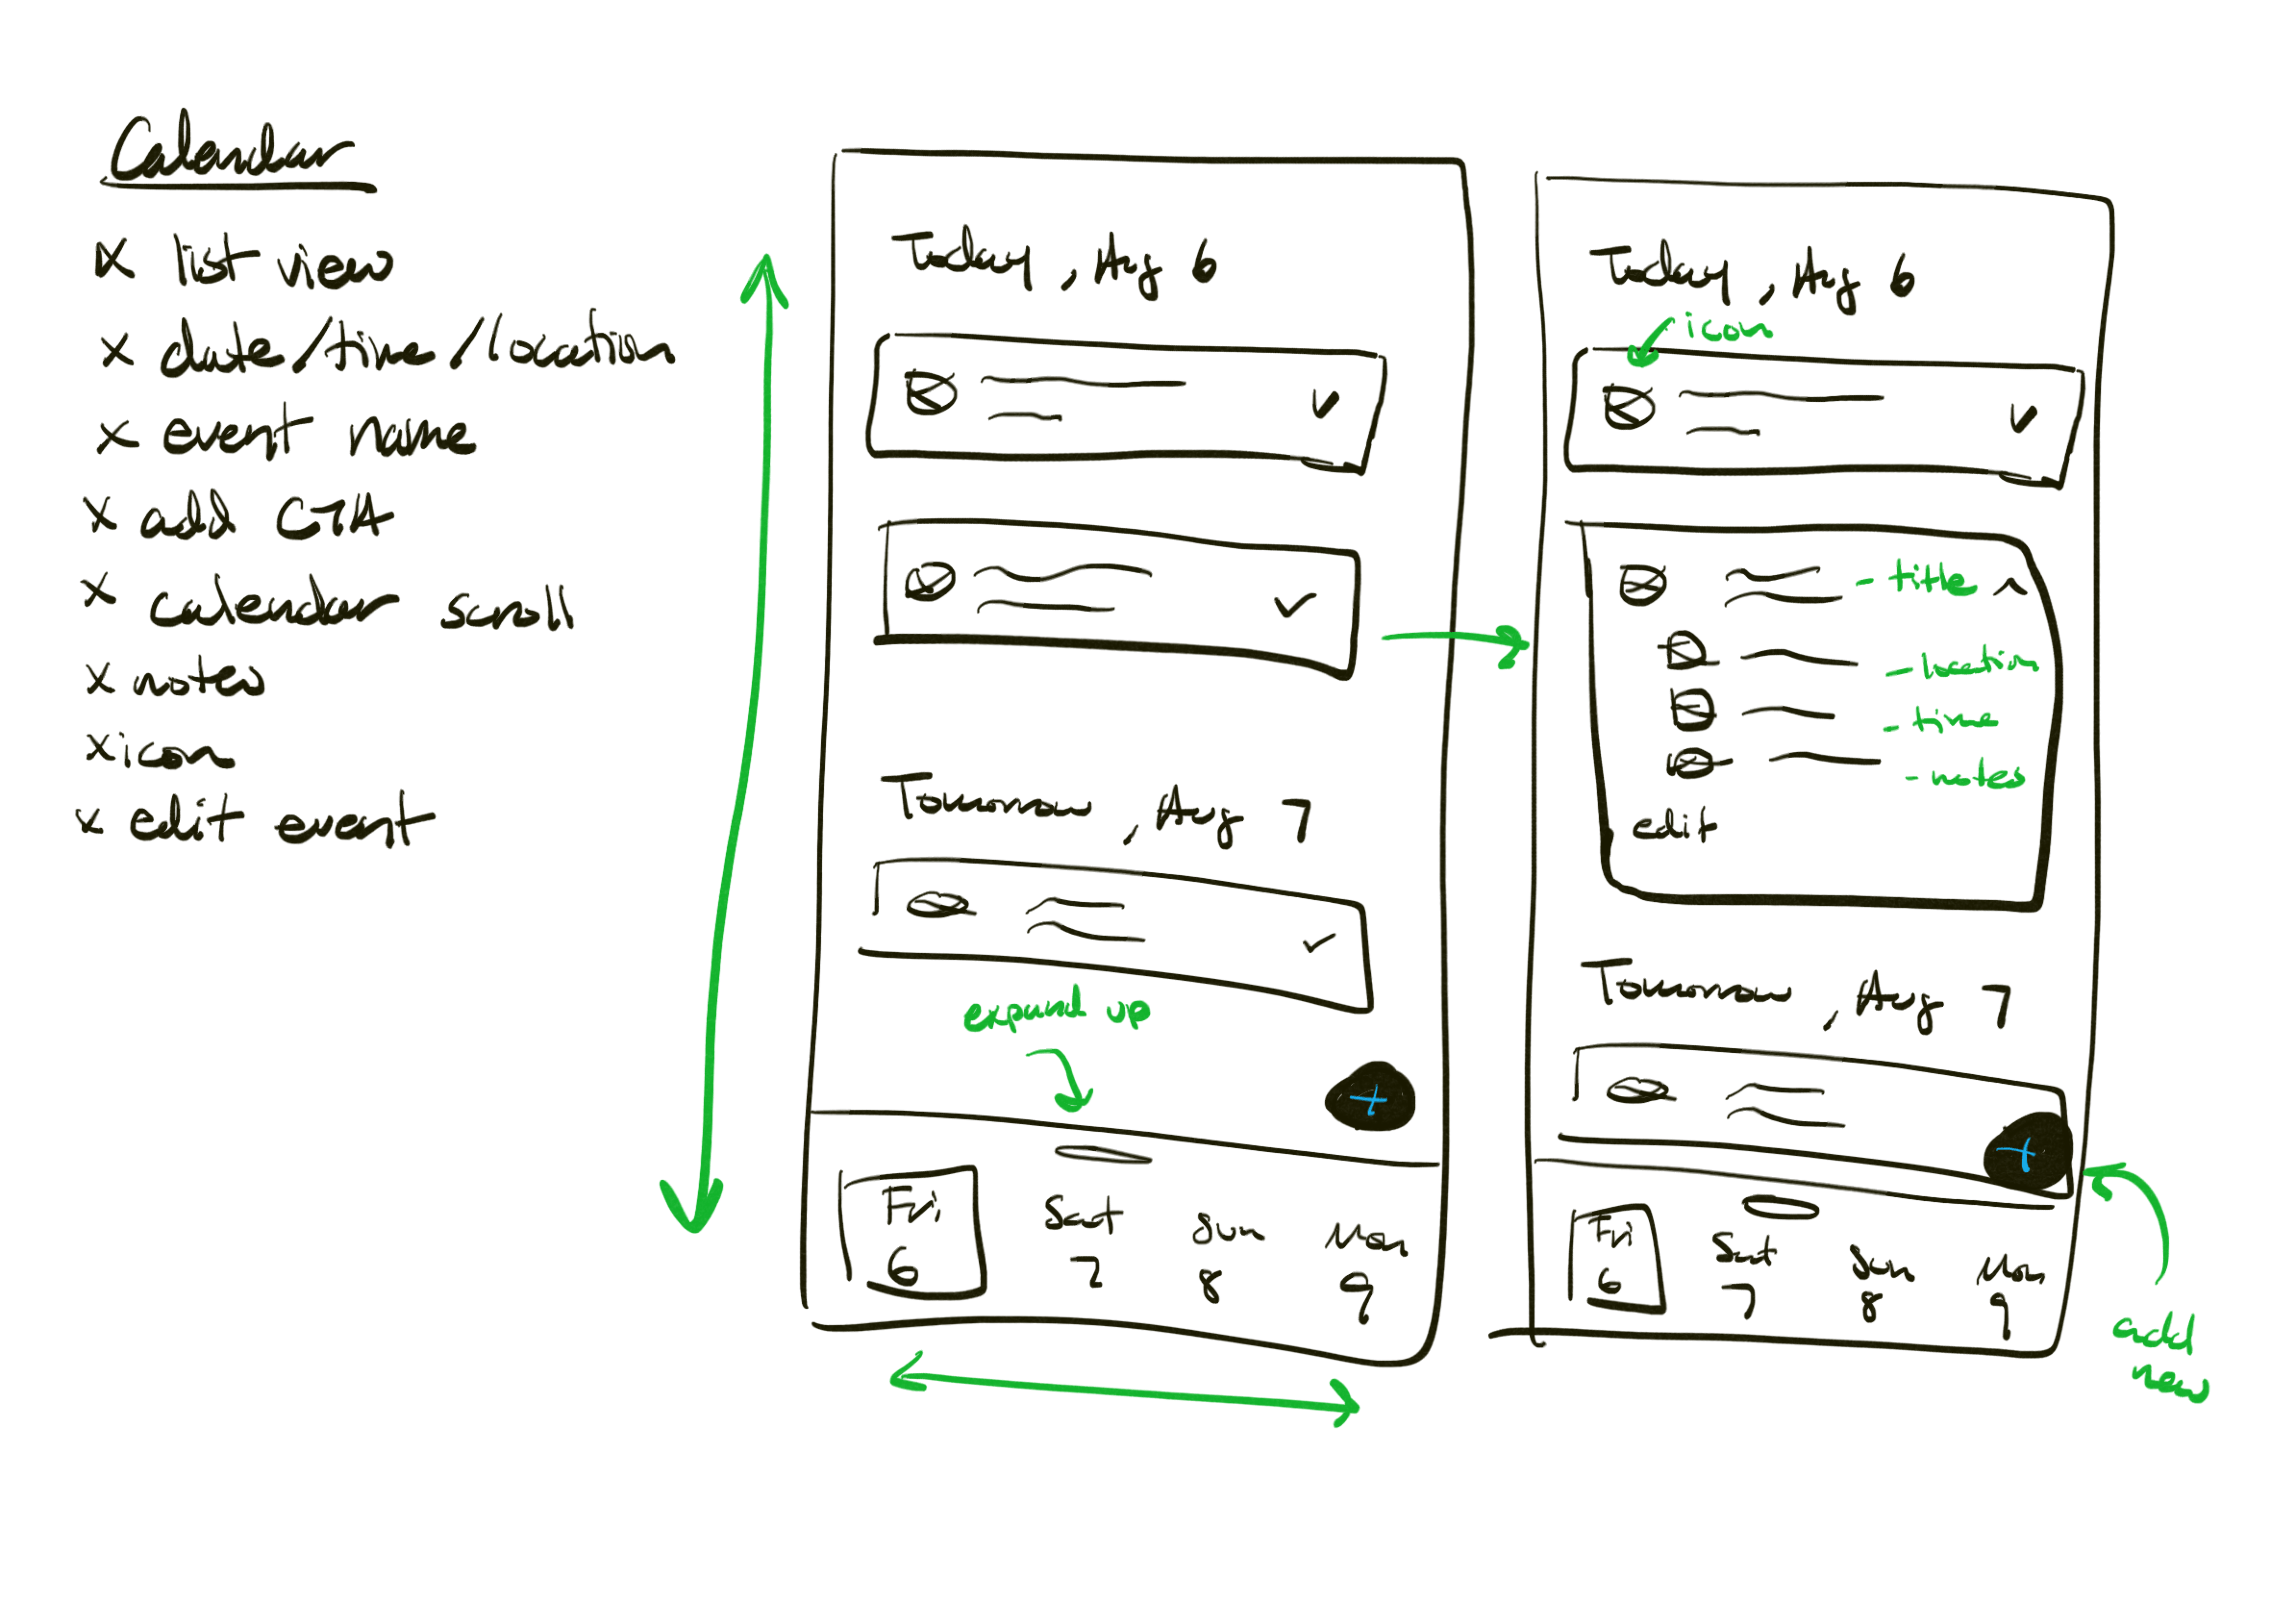 Calendar
x list view
x date/time/location
x event name
x add CTA
x calendar scroll
x notes
x icon
x edit event
Today, Aug 6
Tomorrow, Aug 7
expand up
+
Fri 6
Sat 7
Sun 8
Mon 9
Today, Aug 6
icon
- title
- location
- time
- notes
edit
Tomorrow, Aug 7
+
Fri 6
Sat 7
Sun 8
Mon 9
add
new